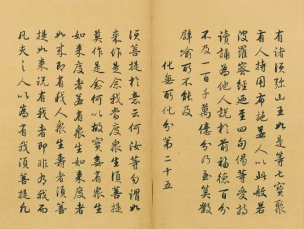 有諸須弥山王如是等七寶聚
有人持用布施若人以此般若
波羅蜜經乃至四句偈等受持
讀誦為他人說於前福德百分
不及一百千萬億分乃至算數
譬喻所不能及
化無所化分第二十五
須菩提於意云何汝等勿謂如
來作是念我當度衆生須菩提
莫作是念何以故實無有衆生
如來度者若有衆生如來度者
如來即有我人衆生壽者須菩
提如來說有我者即非有我而
凡夫之人以為有我須菩提凡